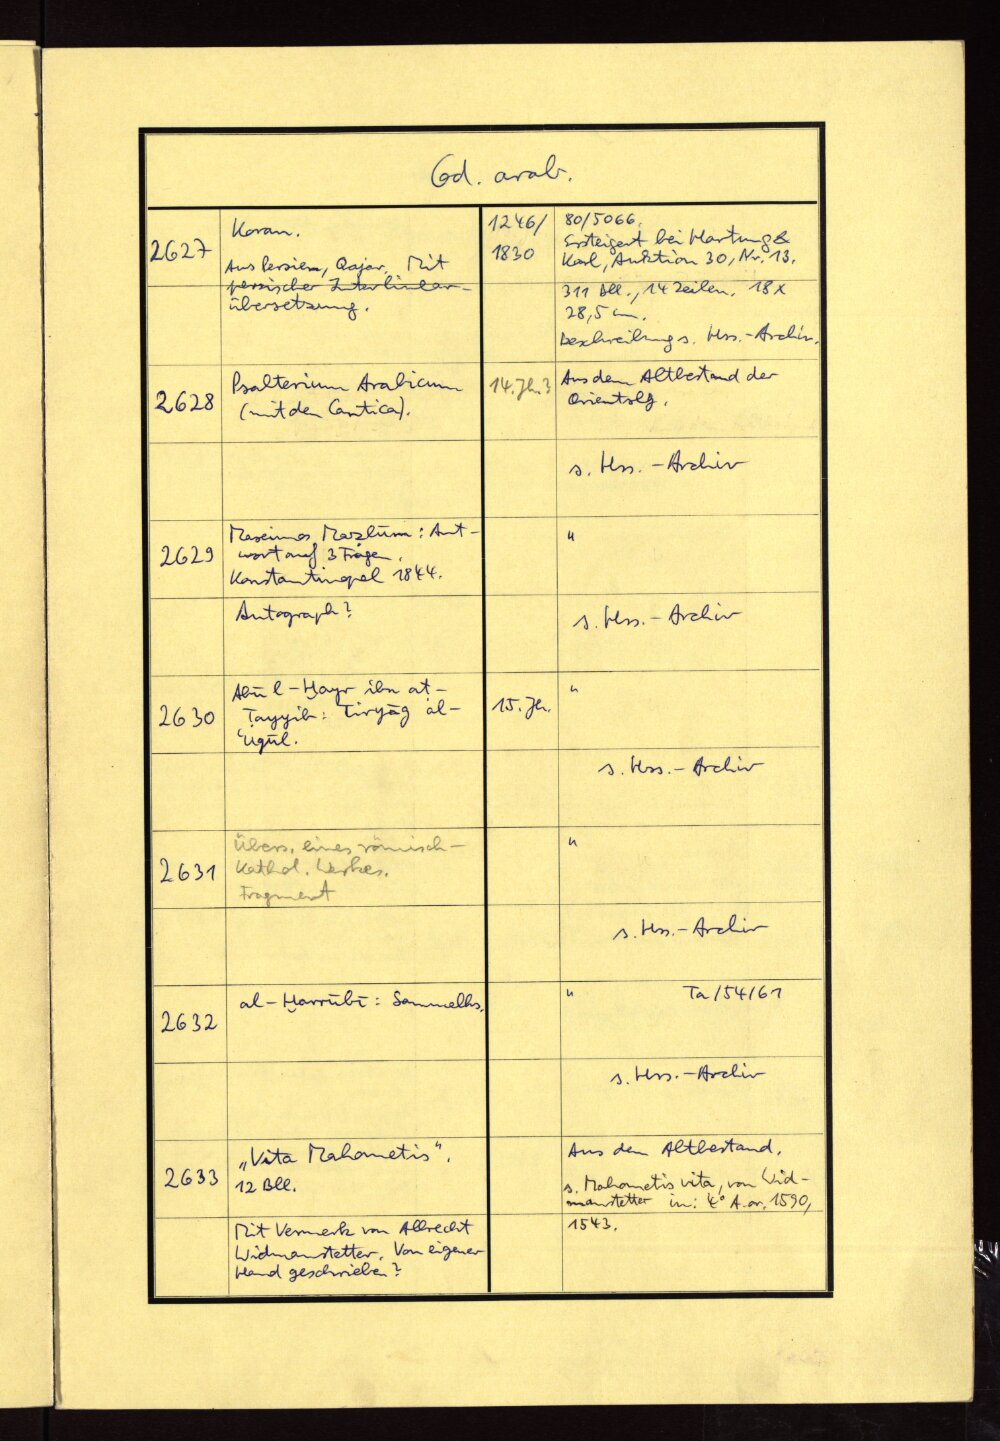 Cod. arab.
2627
Koran.
Aus Persien, Qajar. Mit
persischer Interlinear-
übersetzung.
1246/
1830
80/5066.
Ersteigert bei Hartung &
Karl, Auktion 30, Nr. 13.
311 Bll., 14 Zeilen. 18 x
28,5 cm.
Beschreibung s. Hss.-Archiv.
2628
Psalterium Arabicum
(mit den Cantica).
14. Jh.?
Aus dem Altbestand der
Orientslg.
s. Hss.-Archiv
2629
Maximos Maẓlūm: Ant-
wort auf 3 Fragen.
Konstantinopel 1844.
"
Autograph?
s. Hss.-Archiv
2630
Abū l-Ḫayr ibn aṭ-
Ṭayyib: Tiryāq al-
ʿuqūl.
15. Jh.
"
s. Hss.-Archiv
2631
Übers. eines römisch-
kathol. Werkes.
Fragment
"
s. Hss.-Archiv
2632
al-Ḫarrūbī: Sammelhs.
" Ta/54/61
s. Hss.-Archiv
2633
„Vita Mahometis".
12 Bll.
Mit Vermerk von Albrecht
Widmanstetter. Von eigener
Hand geschrieben?
Aus dem Altbestand.
s. Mahometis vita, von Wid-
manstetter in: 4° A.or. 1590,
1543.